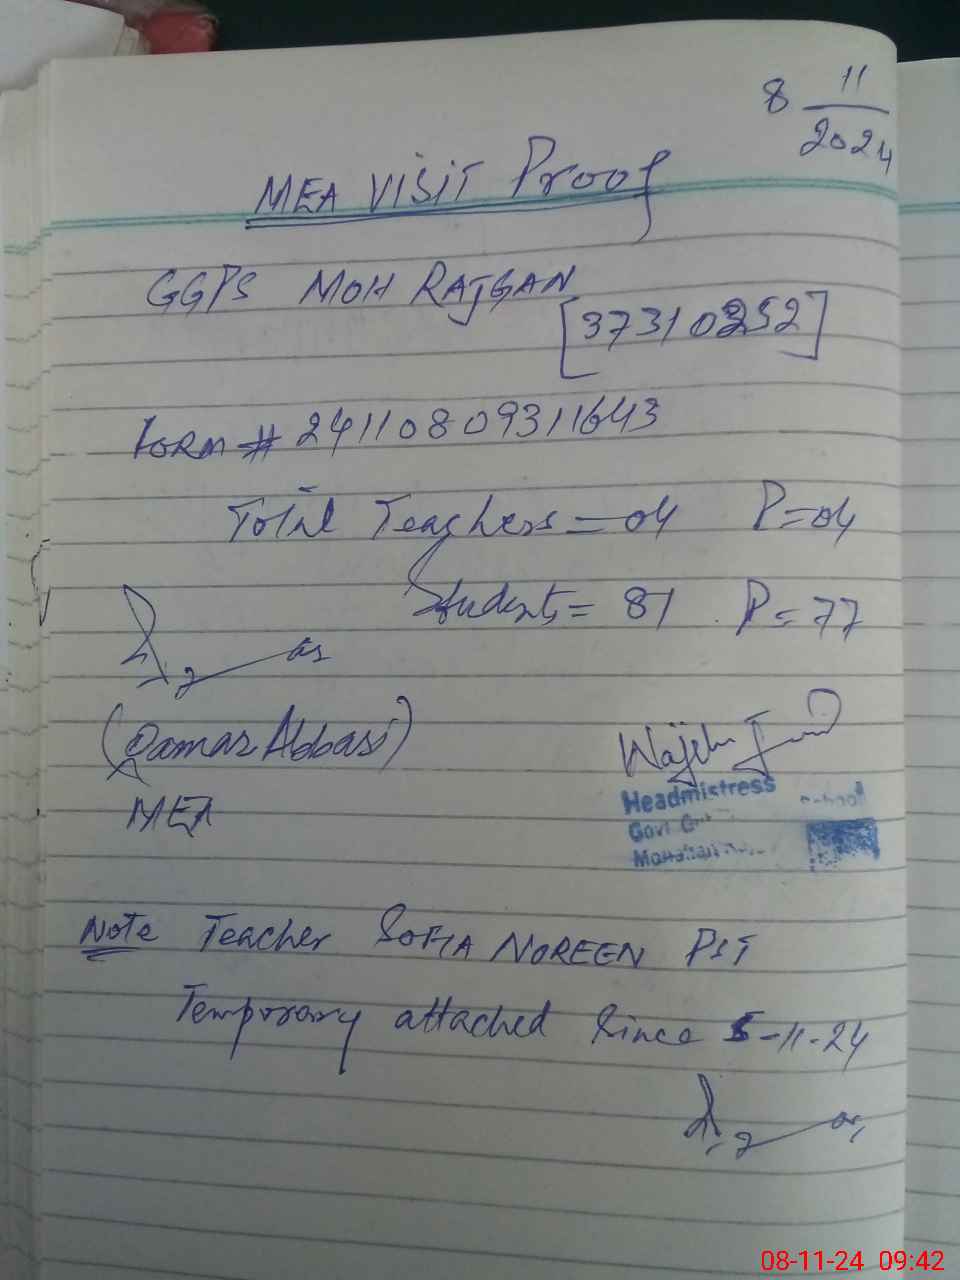 8 11/2024
MEA VISIT Proof
GGPS MOH RAJGAN
[37310252]
FORM # 24110809311643
Total Teachers = 04 P=04
Students = 81 P=77
(Qamar Abbasi)
MEA
Headmistress
Govt
School
Note Teacher SOFIA NOREEN PST
Temporary attached Since 5-11-24
08-11-24 09:42